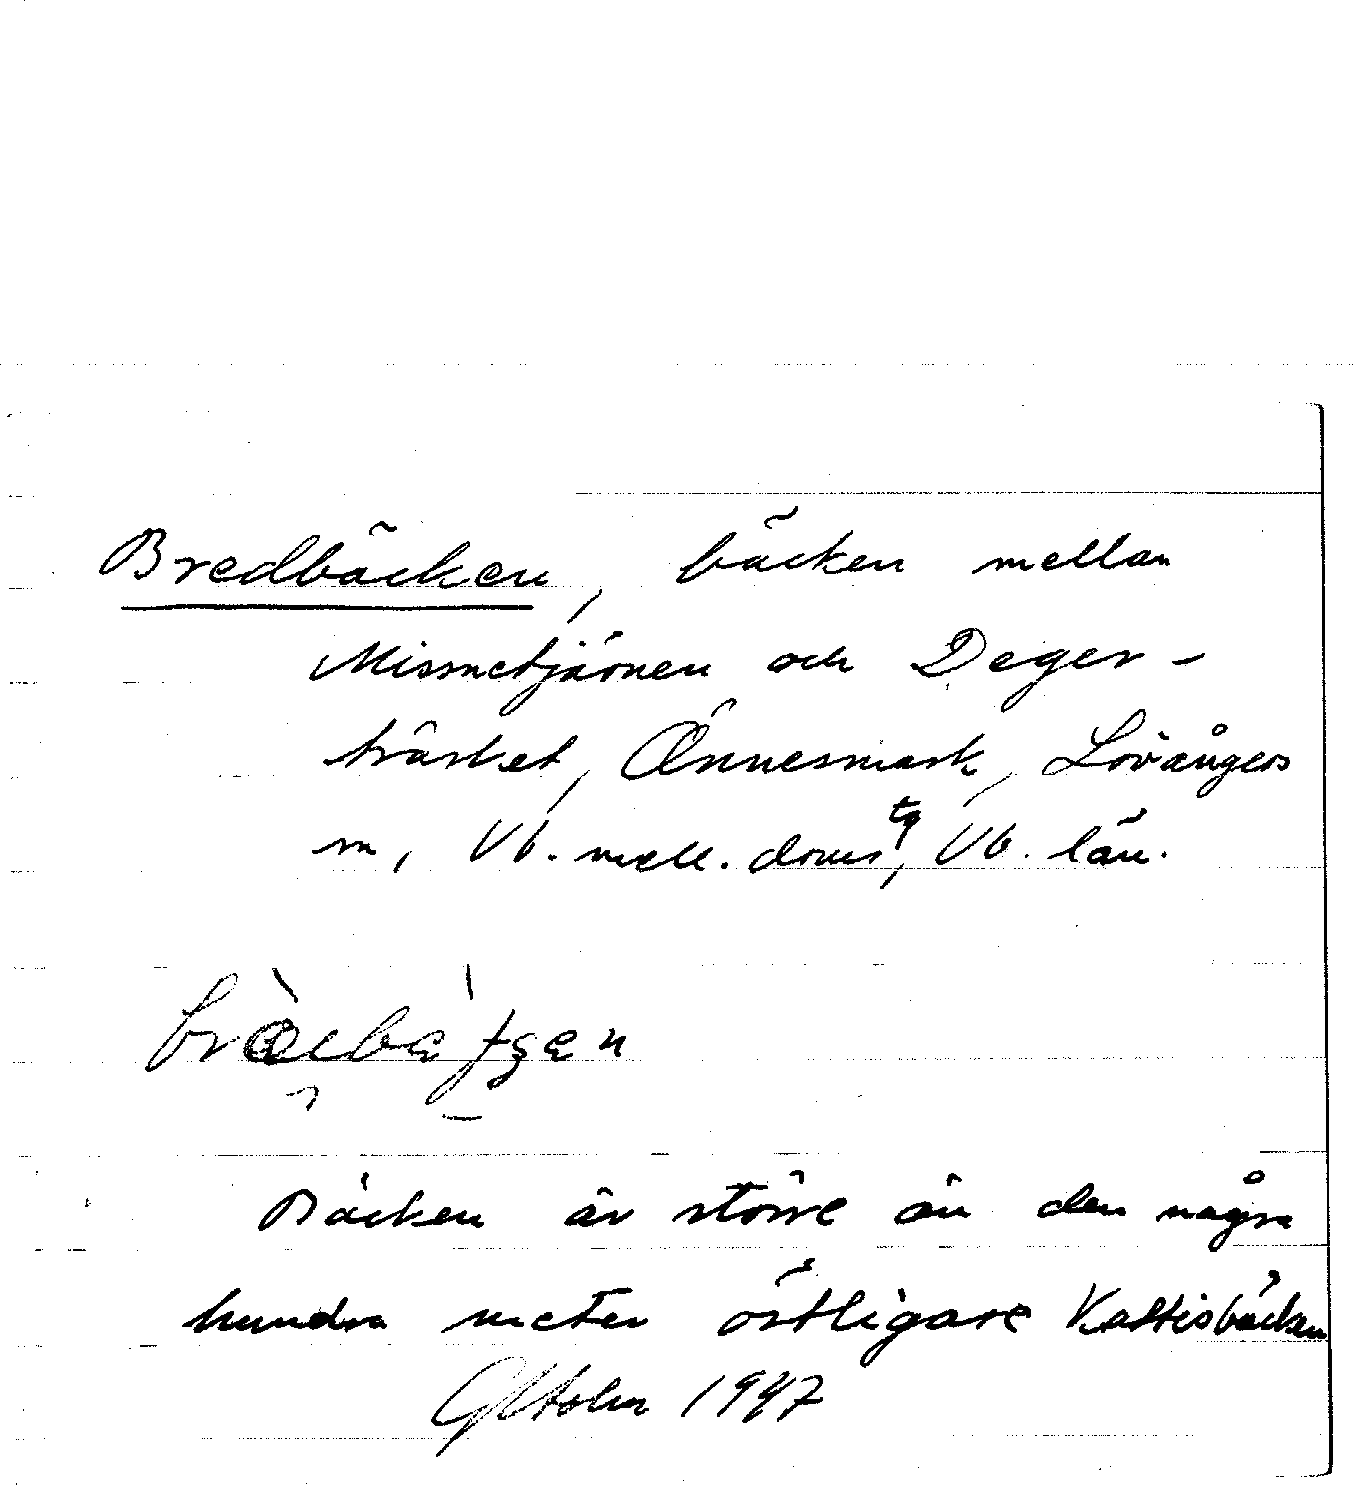 Bredbäcken, bäcken mellan
Missnetjärnen och Deger-
träsket, Önnesmark, Lövångers
sn, Vb. mell. doms tg, Vb. län.
Bäcken är större än den några
hundra meter östligare Kattisbäcken
1947